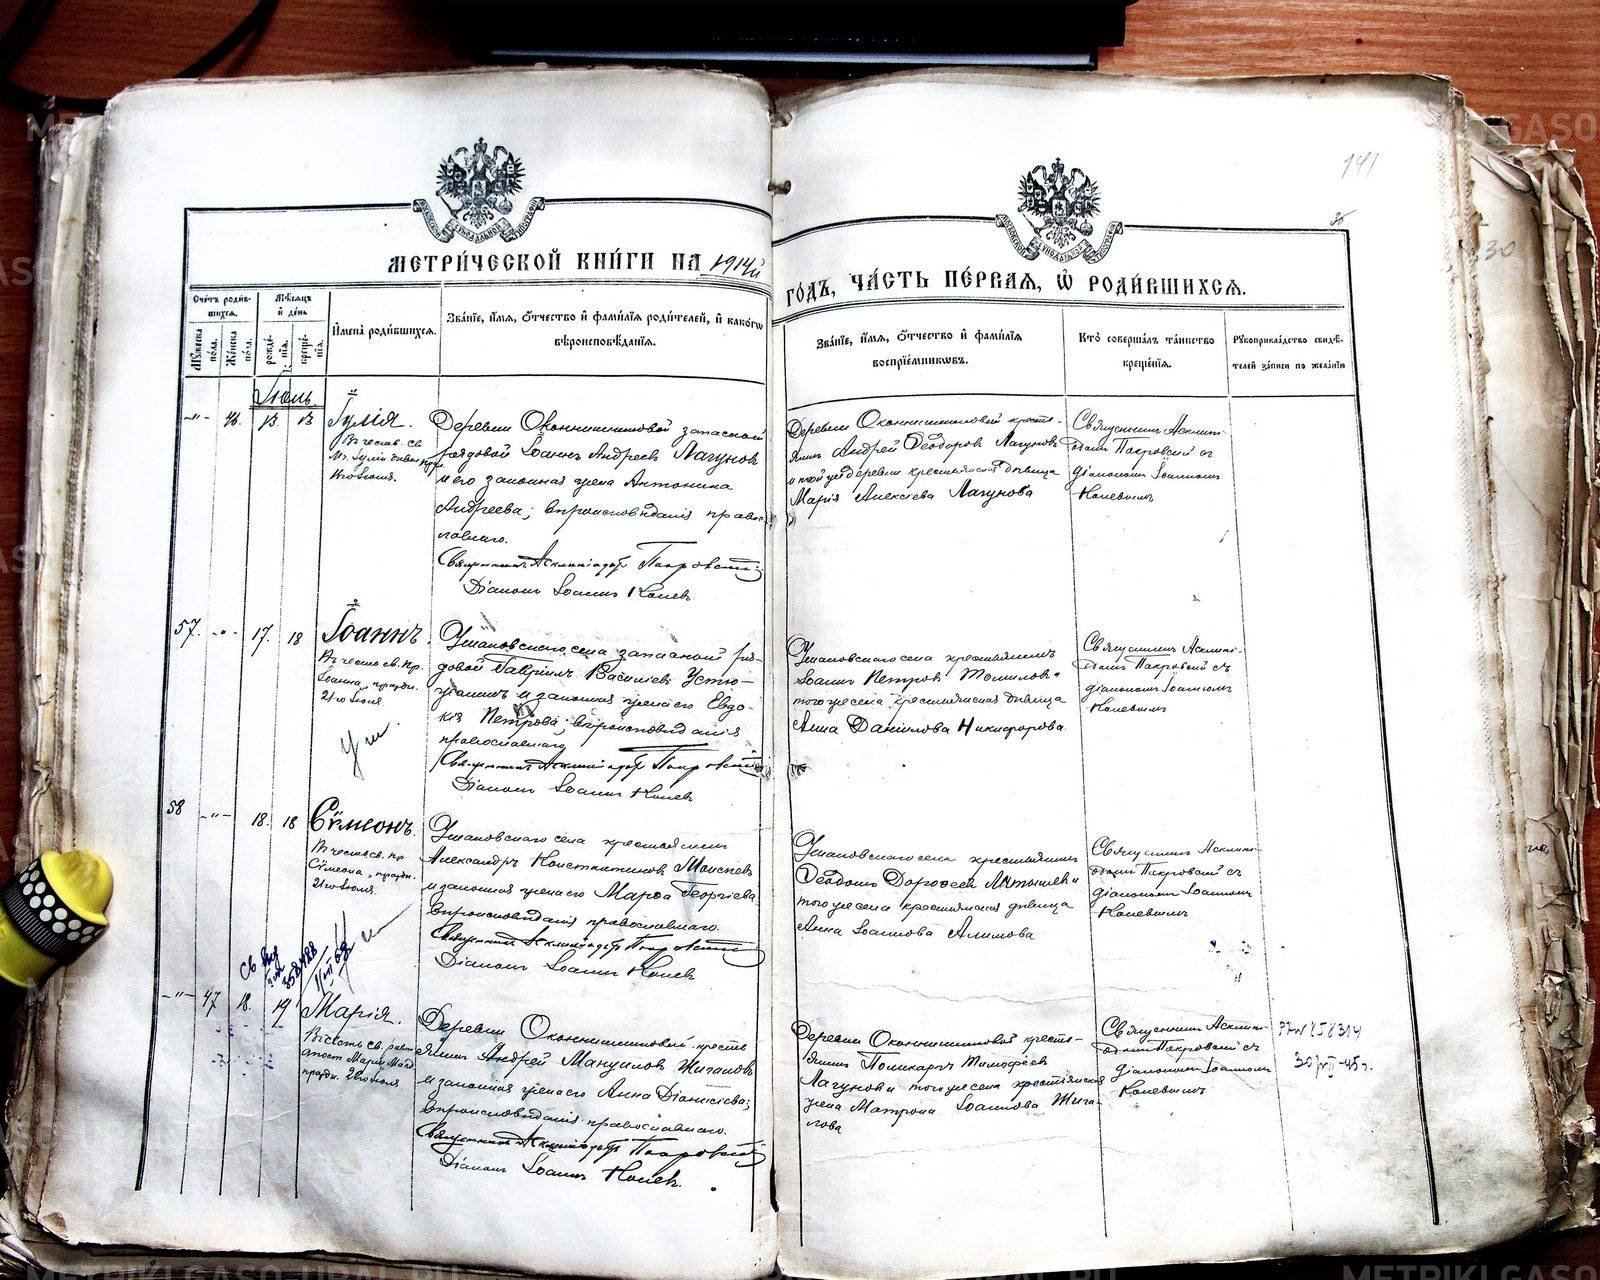 МЕТРИ́ЧЕСКОЙ КНИ́ГИ НА 1914й
ГО́ДЪ, ЧА́СТЬ ПЕ́РВАЯ, Ѽ РОДИ́ВШИХСЯ.
141
Сче́тъ роди́в-
шихся.
Му́жеска по́ла.
Же́нска по́ла.
Мѣ́сяцъ
и҆ де́нь
рожде́-
нія.
креще́-
нія.
И҆мена̀ роди́вшихся.
Зва́ніе, и҆́мя, ѻ҆́тчество и҆ фами́лія роди́телей, и҆ како́гѡ
вѣроисповѣ́данія.
Зва́ніе, и҆́мя, ѻ҆́тчество и҆ фами́лія
воспріе́мникѡвъ.
Кто̀ соверша́лъ та́инство
креще́нія.
Рꙋкоприкла́дство свидѣ́-
телей за́писи по жела́нію
Іюль.
-"- 46. 13. 13 Іулія.
Деревни Оконишниковой запасной
рядовой Іоаннъ Андреев Лагунов
и его законная жена Антонина
Андреева; вѣроисповѣданія правос-
лавнаго.
Священник Асклипіадот Покровский
Діакон Іоанн Конев.
Деревни Оконишниковой кресть-
янин Андрей Ѳеодоров Лагунов
и той же деревни крестьянская дѣвица
Марія Алексѣева Лагунова
Священник Асклипі-
одот Покровский съ
діаконом Іоанном
Коневым
57. -"- 17. 18 Іоаннъ.
Въ честь св. пр.
Іоанна, праздн.
21го Іюля
Ушаковскаго села запасной ря-
довой Гавріил Василіев Устю-
жанинъ и законная жена его Евдо-
кія Петрова; вѣроисповѣданія
православнаго
Священник Асклипіадот Покровский
Діакон Іоанн Конев
Ушаковскаго села крестьянинъ
Іоанн Петров Томилов и
того же села крестьянская дѣвица
Анна Даніилова Никифорова.
Священник Асклипі-
одот Покровский съ
діаконом Іоанном
Коневым
58 -"- 18. 18 Сѵмеонъ.
Въ честь св. пр.
Сѵмеона, праздн.
21го Іюля.
Ушаковскаго села крестьянин
Александръ Константинов Моисеев
и законная жена его Марѳа Георгіева
вѣроисповѣданія православнаго.
Священник Асклипіадот Покровский
Діакон Іоанн Конев
Ушаковскаго села крестьянин
Ѳеодот Дорофеев и
того же села крестьянская дѣвица
Анна Іоаннова Алимова
Священник Асклипі-
одот Покровский съ
діаконом Іоанном
Коневым
-"- 47 18. 19 Марія.
Въ честь св. равно-
апост. Маріи Магд.
праздн. 22го Іюля
Деревни Оконишниковой кресть-
янин Андрей Мануилов Жигалов
и законная жена его Анна Діонисіева;
вѣроисповѣданія православнаго.
Священник Асклипіадот Покровский
Діакон Іоанн Конев.
Деревни Оконишниковой кресть-
янин Поликарп Тимофеев
Лагунов и того же села крестьянская
жена Матрона Іоаннова Жига-
лова
Священник Асклипі-
одот Покровский съ
діаконом Іоанном
Коневым
30/VII-45г.
METRIKI.GASO-URAL.RU